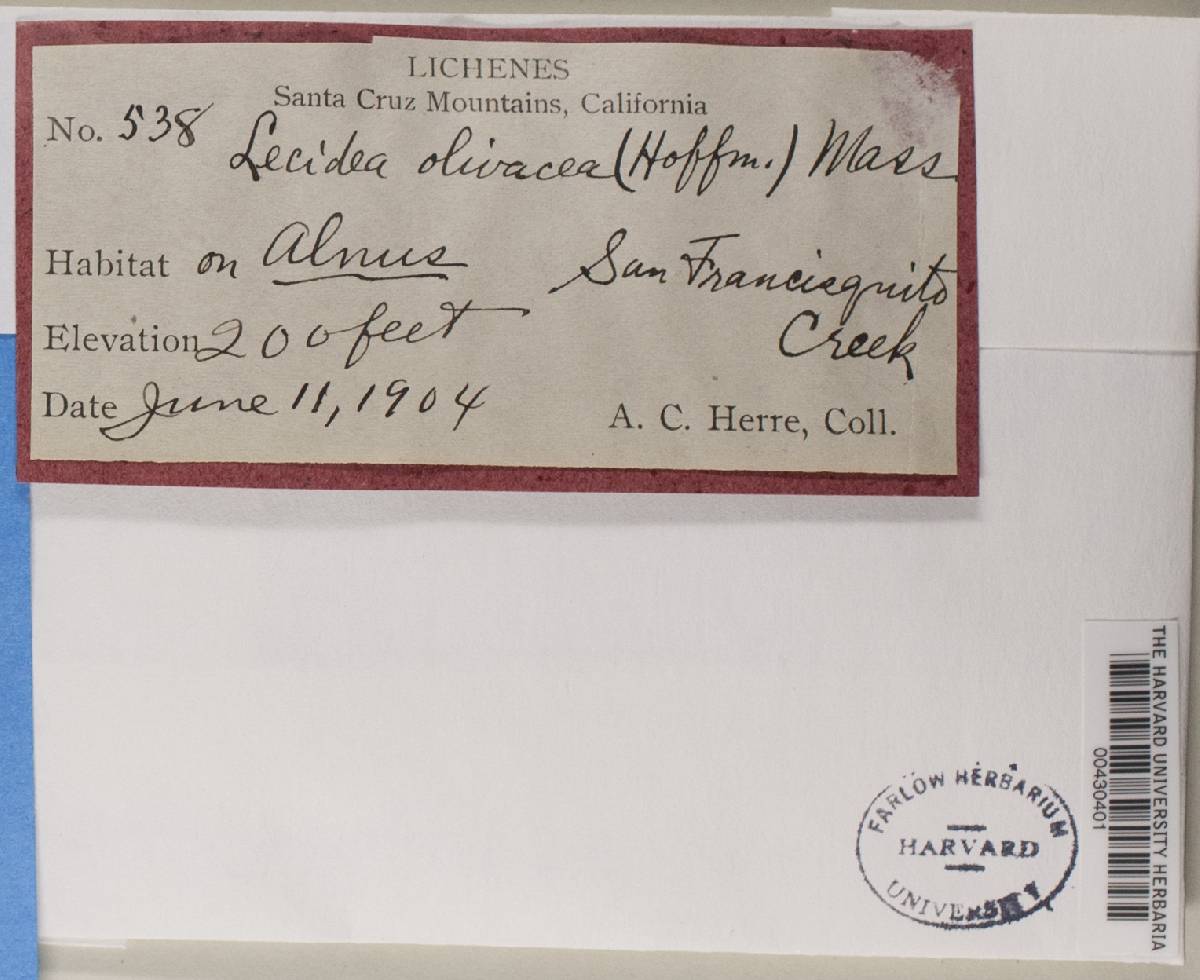 LICHENES
Santa Cruz Mountains, California
No. 538 Lecidea olivacea (Hoffm.) Mass
Habitat on Alnus San Francisquito
Creek
Elevation 200 feet
Date June 11, 1904
A. C. Herre, Coll.
THE HARVARD UNIVERSITY HERBARIA
00430401
FARLOW HERBARIUM
HARVARD
UNIVERSITY